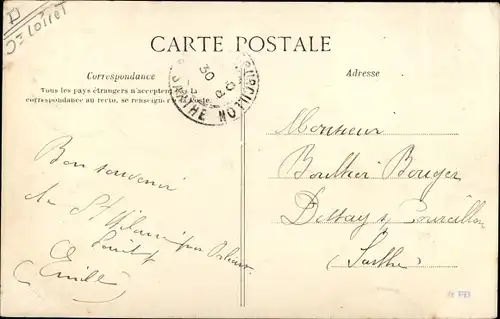 D=Loiret
CARTE POSTALE
Correspondance
Tous les pays étrangers n'acceptent pas la
correspondance au recto, se renseigner à la Poste.
Adresse
COURCILLON
SARTHE
30
Bon souvenir
de St Hilaire
Loiret
Emile
Monsieur
Boultier Bouger
Courcillon
(Sarthe)